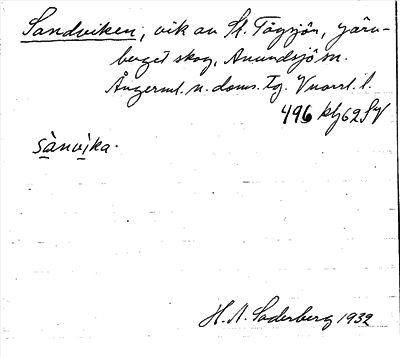 Sandviken, vik av St. Tågsjön, Järn-
berget skog, Anundsjö sn.
Ångerml. n. doms. tg. Vnorrl. l.
496 kbf 62 SV
sànvika.
H. N. Söderberg 1932